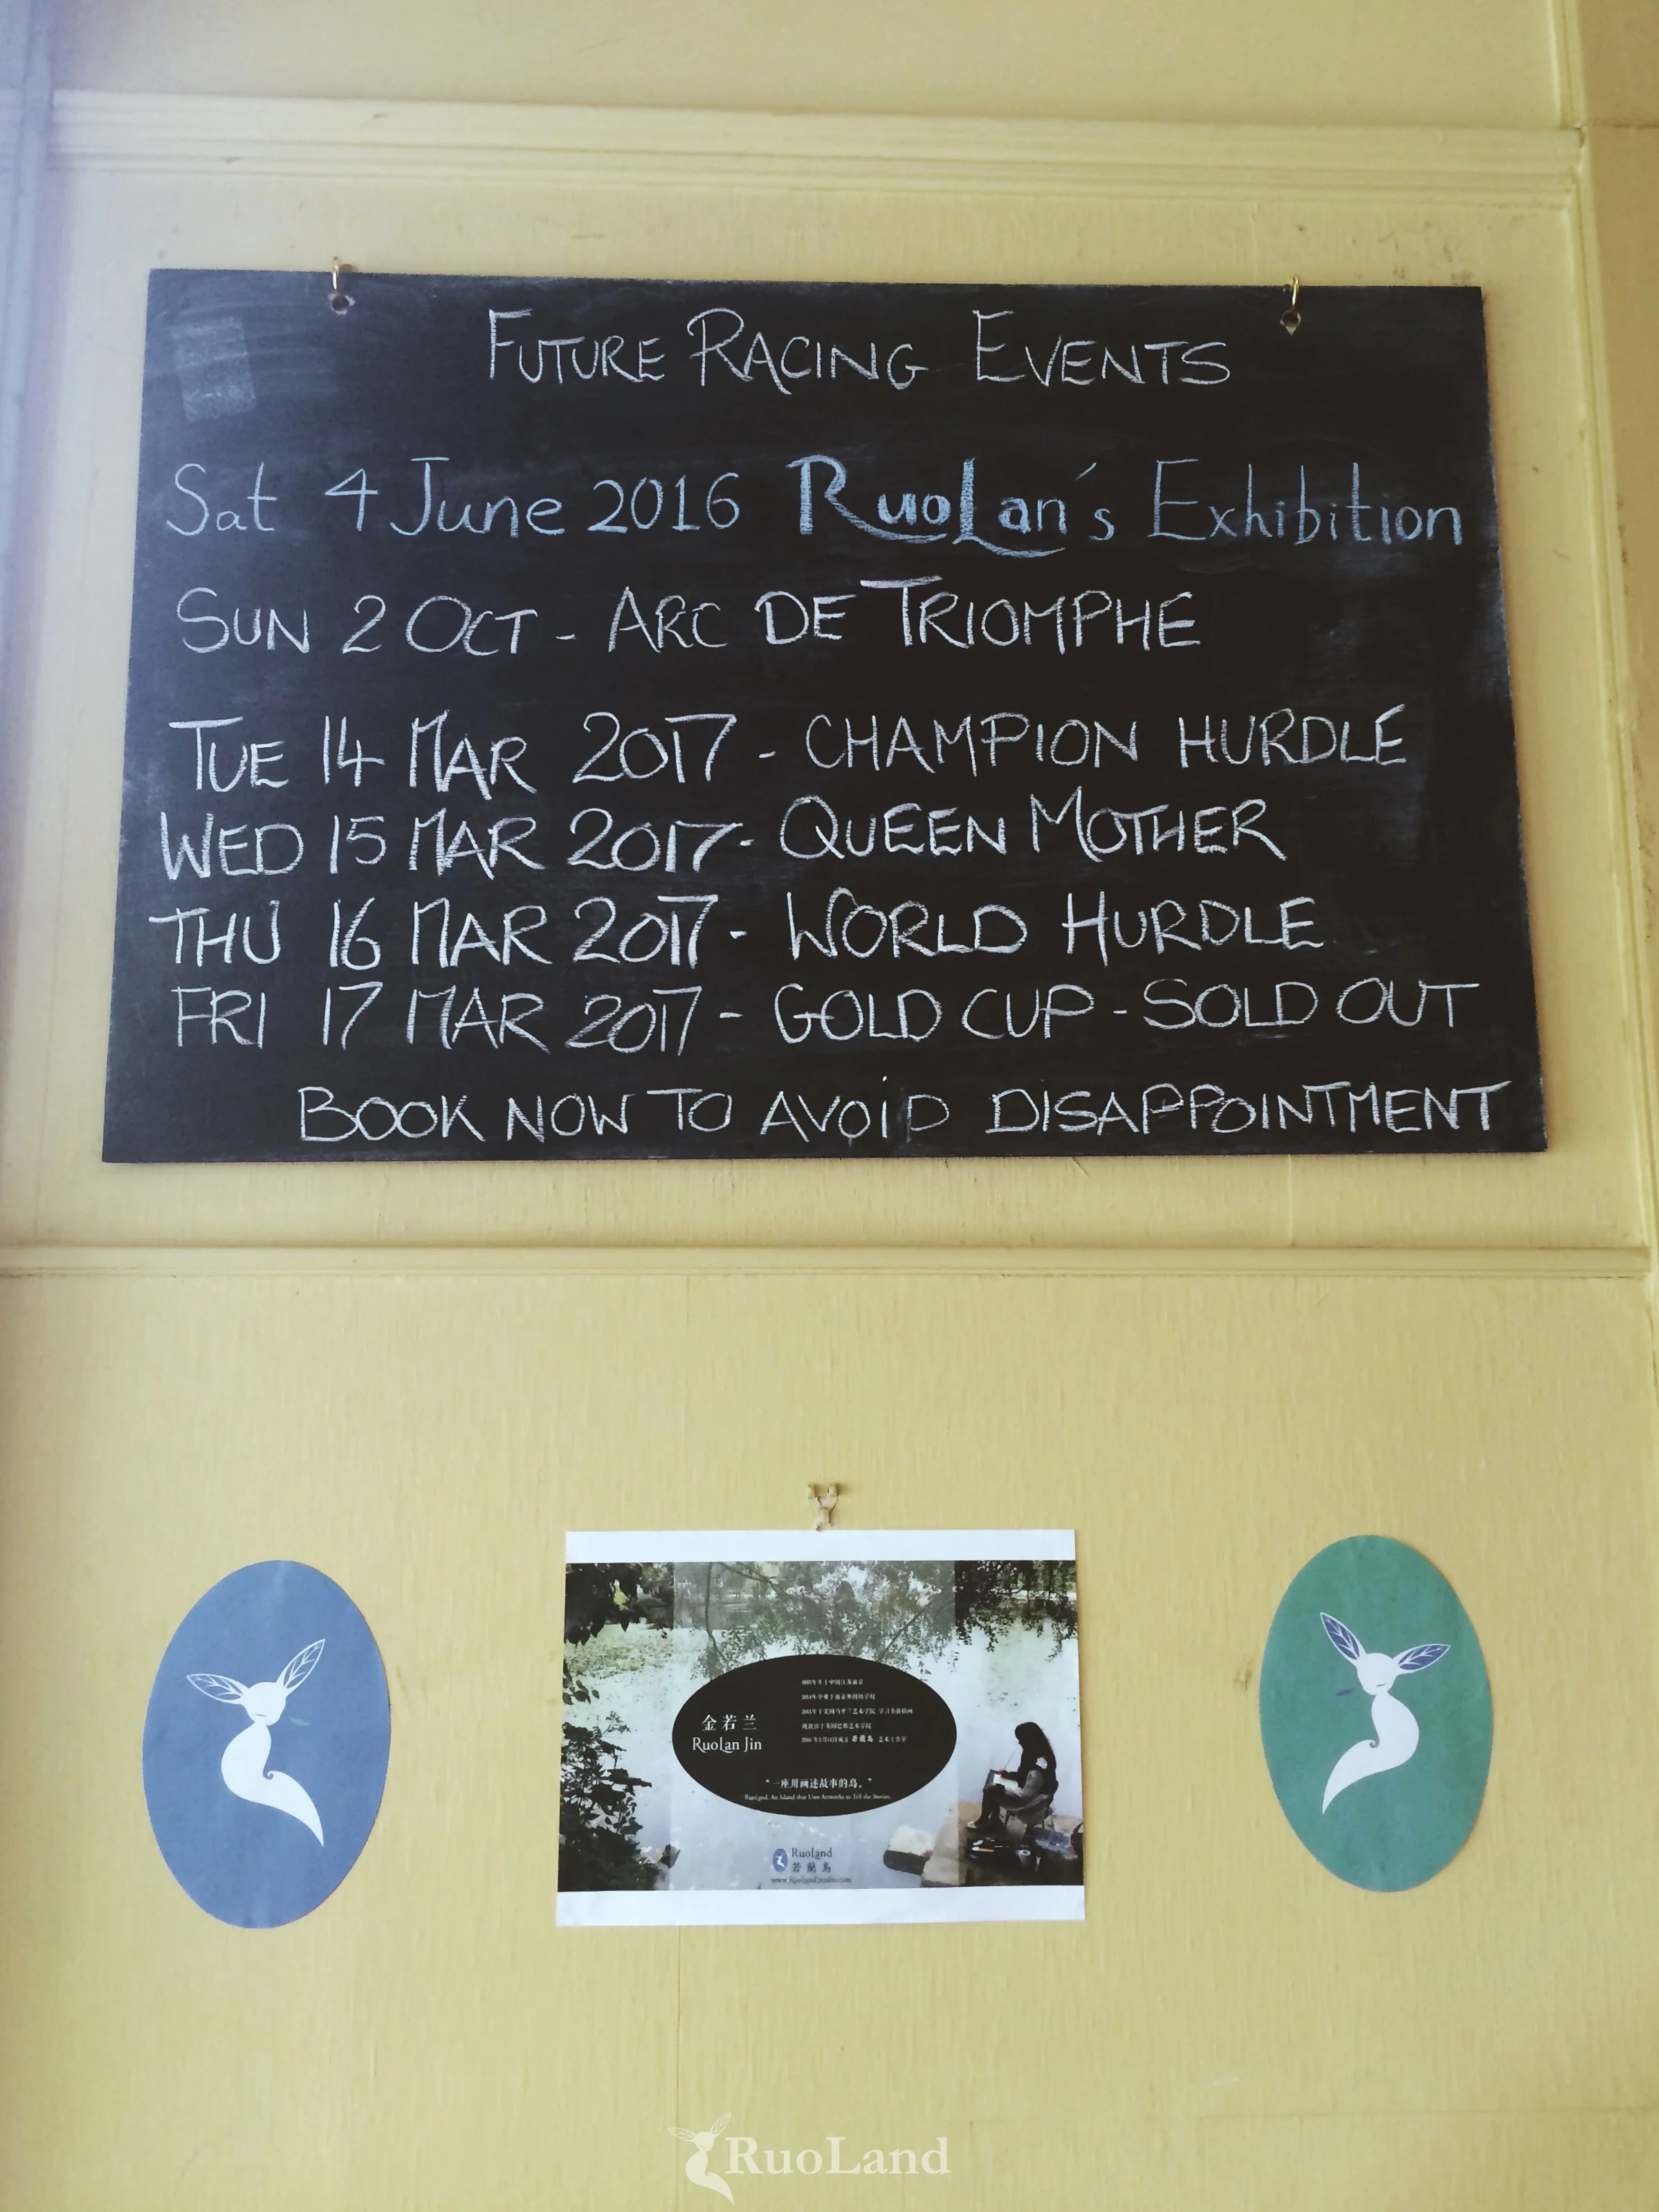 FUTURE RACING EVENTS
Sat 4 June 2016 RuoLan's Exhibition
SUN 2 OCT - ARC DE TRIOMPHE
TUE 14 MAR 2017 - CHAMPION HURDLE
WED 15 MAR 2017 - QUEEN MOTHER
THU 16 MAR 2017 - WORLD HURDLE
FRI 17 MAR 2017 - GOLD CUP - SOLD OUT
BOOK NOW TO AVOID DISAPPOINTMENT
金若兰
RuoLan Jin
"一座用画述故事的岛。"
RuoLand, An Island that Uses Artworks to Tell the Stories.
RuoLand
若蘭島
RuoLand